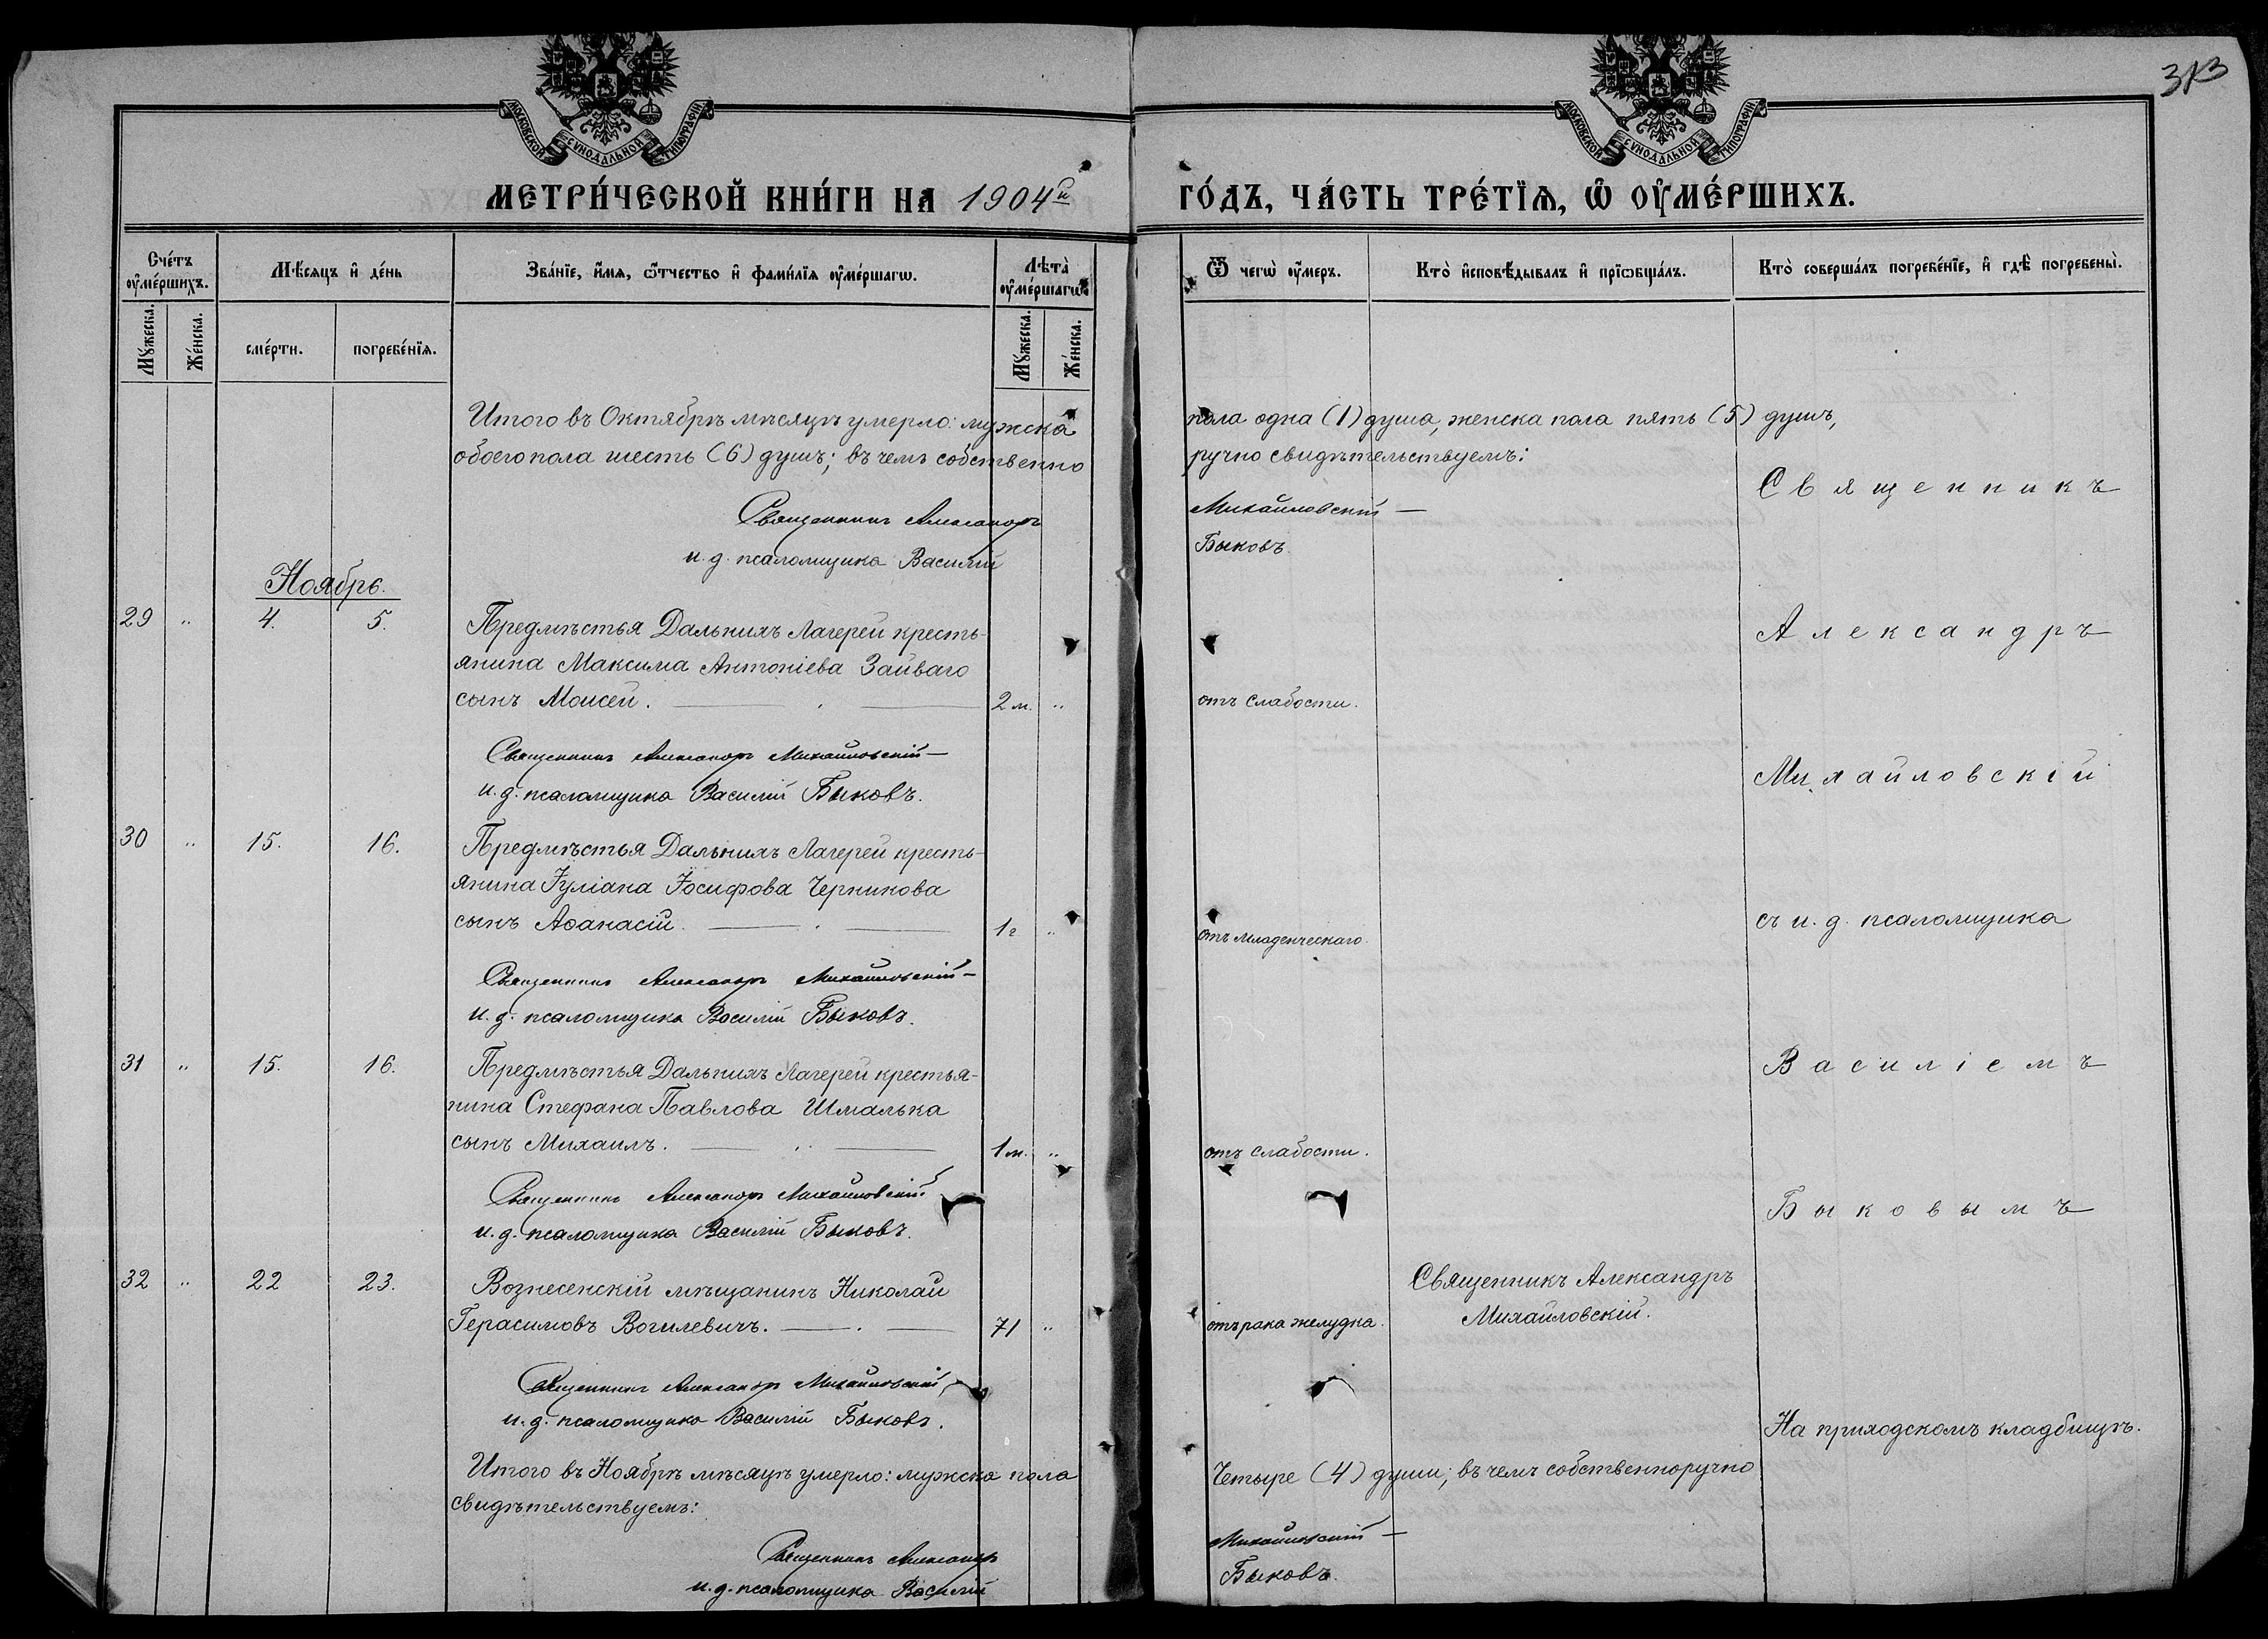 313
МОСКОВСКОЙ СѴНОДАЛЬНОЙ ТИПОГРАФІИ
МОСКОВСКОЙ СѴНОДАЛЬНОЙ ТИПОГРАФІИ
МЕТРИ́ЧЕСКОЙ КНИ́ГИ НА 1904й ГО́ДЪ, ЧА́СТЬ ТРЕ́ТЇѦ, Ѡ҆ ОУ҆МЕ́РШИХЪ.
Сче́тъ оу҆ме́ршихъ.
Мꙋ́жеска.
Же́нска.
Мѣ́сѧцъ и҆ де́нь
сме́рти.
погребе́нїѧ.
Зва́нїе, и҆́мѧ, ѻ҆́тчество и҆ фами́лїѧ оу҆ме́ршагѡ.
Лѣта̀ оу҆ме́ршагѡ.
Мꙋ́жеска.
Же́нска.
Ѿ чегѡ̀ оу҆́меръ.
Кто̀ и҆сповѣ́дывалъ и҆ прїѻбща́лъ.
Кто̀ соверша́лъ погребе́нїе, и҆ гдѣ̀ погребены̀.
Итого въ Октябрѣ мѣсяцѣ умерло: мужска пола одна (1) душа, женска пола пять (5) душъ,
обоего пола шесть (6) душъ; въ чемъ собственно ручно свидѣтельствуемъ:
Священникъ Александръ Михайловскій
и. д. псаломщика Василій Быковъ.
Ноябрь.
29 " 4. 5. Предмѣстья Дальнихъ Лагерей кресть-
янина Максима Антоніева Зайваго
сынъ Моисей. 2 м. " отъ слабости.
Священникъ Александръ Михайловскій
и. д. псаломщика Василій Быковъ.
30 " 15. 16. Предмѣстья Дальнихъ Лагерей кресть-
янина Іуліана Іосифова Черникова
сынъ Аѳанасій. 1 г. " отъ младенческаго.
Священникъ Александръ Михайловскій
и. д. псаломщика Василій Быковъ.
31 " 15. 16. Предмѣстья Дальнихъ Лагерей крестья-
нина Стефана Павлова Шмалька
сынъ Михаилъ. 1 м. " отъ слабости.
Священникъ Александръ Михайловскій
и. д. псаломщика Василій Быковъ.
32 " 22 23. Вознесенскій мѣщанинъ Николай
Герасимовъ Вогилевичъ. 71 " отъ рака желудка.
Священникъ Александръ
Михайловскій.
Священникъ Александръ Михайловскій
и. д. псаломщика Василій Быковъ.
Священникъ
Александръ
Михайловскій
съ и. д. псаломщика
Василіемъ
Быковымъ
На приходскомъ кладбищѣ.
Итого въ Ноябрѣ мѣсяцѣ умерло: мужска пола Четыре (4) души; въ чемъ собственноручно
свидѣтельствуемъ:
Священникъ Александръ Михайловскій
и. д. псаломщика Василій Быковъ.